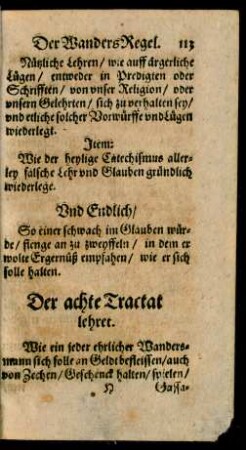 Der Wanders Regel. 113
Nützliche Lehren / wie auff ärgerliche
Lügen / entweder in Predigten oder
Schrifften / von vnser Religion / oder
vnsern Gelehrten / sich zu verhalten sey /
vnd etliche solcher Vorwürffe vnd Lügen
wiederlegt.
Item:
Wie der heylige Catechismus aller-
ley falsche Lehr vnd Glauben gründlich
wiederlege.
Vnd Endlich /
So einer schwach im Glauben wür-
de / fienge an zu zweyffeln / in dem er
wolte Ergernüß empfahen / wie er sich
solle halten.
Der achte Tractat
lehret.
Wie ein jeder ehrlicher Wanders-
mann sich solle an Geldt befleissen / auch
von Zechen / Geschenck halten / spielen /
H Gassa-